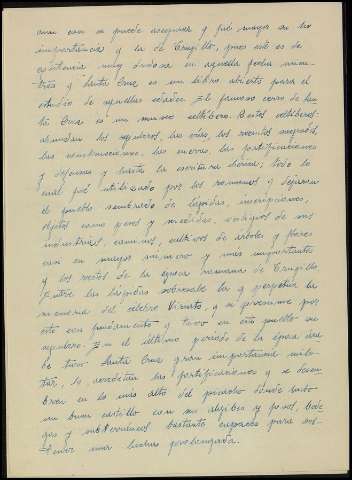 aun casi se puede asegurar y que mayor en la
importancia y la de Trujillo, pues este es de
existencia muy dudosa en aquella fecha mien-
tras y Santa Cruz es un libro abierto para el
estudio de aquellas edades. El famoso cerro de San-
ta Cruz es un museo celtíbero. Restos celtíberos:
abundan los sepulcros, las vías, los recintos sagrados,
las construcciones, las cuevas, las fortificaciones
y defensas y hasta la escritura ibérica; todo lo
cual fué utilizado por los romanos y dejaron
el pueblo sembrado de lápidas, inscripciones,
objetos como pesos y medidas, vestigios de sus
industrias, caminos, cultivos de árboles y flores
casi en mayor número y más importantes
y los restos de la época romana de Trujillo
Entre las lápidas sobresale la q perpetúa la
memoria del célebre Viriato, y si creemos por
este con fundamento y tuvo en este pueblo su
sepulcro. En el último periodo de la época ára-
be tuvo Santa Cruz gran importancia mili-
tar, lo acreditan las fortificaciones y se descu-
bren en lo más alto del picacho donde hubo
un buen castillo con su aljibes y pozo, bode
gas y subterráneos bastante capaces para sos-
tener una lucha prolongada.